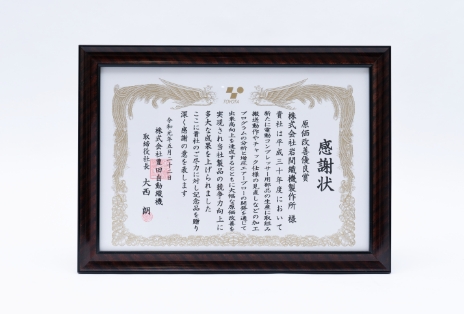 感謝状
原価改善優良賞
株式会社岩間織機製作所 様
貴社は平成三十年度において
新たに電動コンプレッサー用部品の生産に取組み
搬送動作やチャック仕様の見直しなどの加工
プログラムの分析と増圧エアーブローの開発を通じて
出来高向上を達成するとともに大幅な原価改善を
実現され当社製品の競争力向上に
多大な成果を上げられました
ここに貴社のご尽力に対し記念品を贈り
深く感謝の意を表します
令和元年五月二十二日
株式会社豊田自動織機
取締役社長 大西 朗